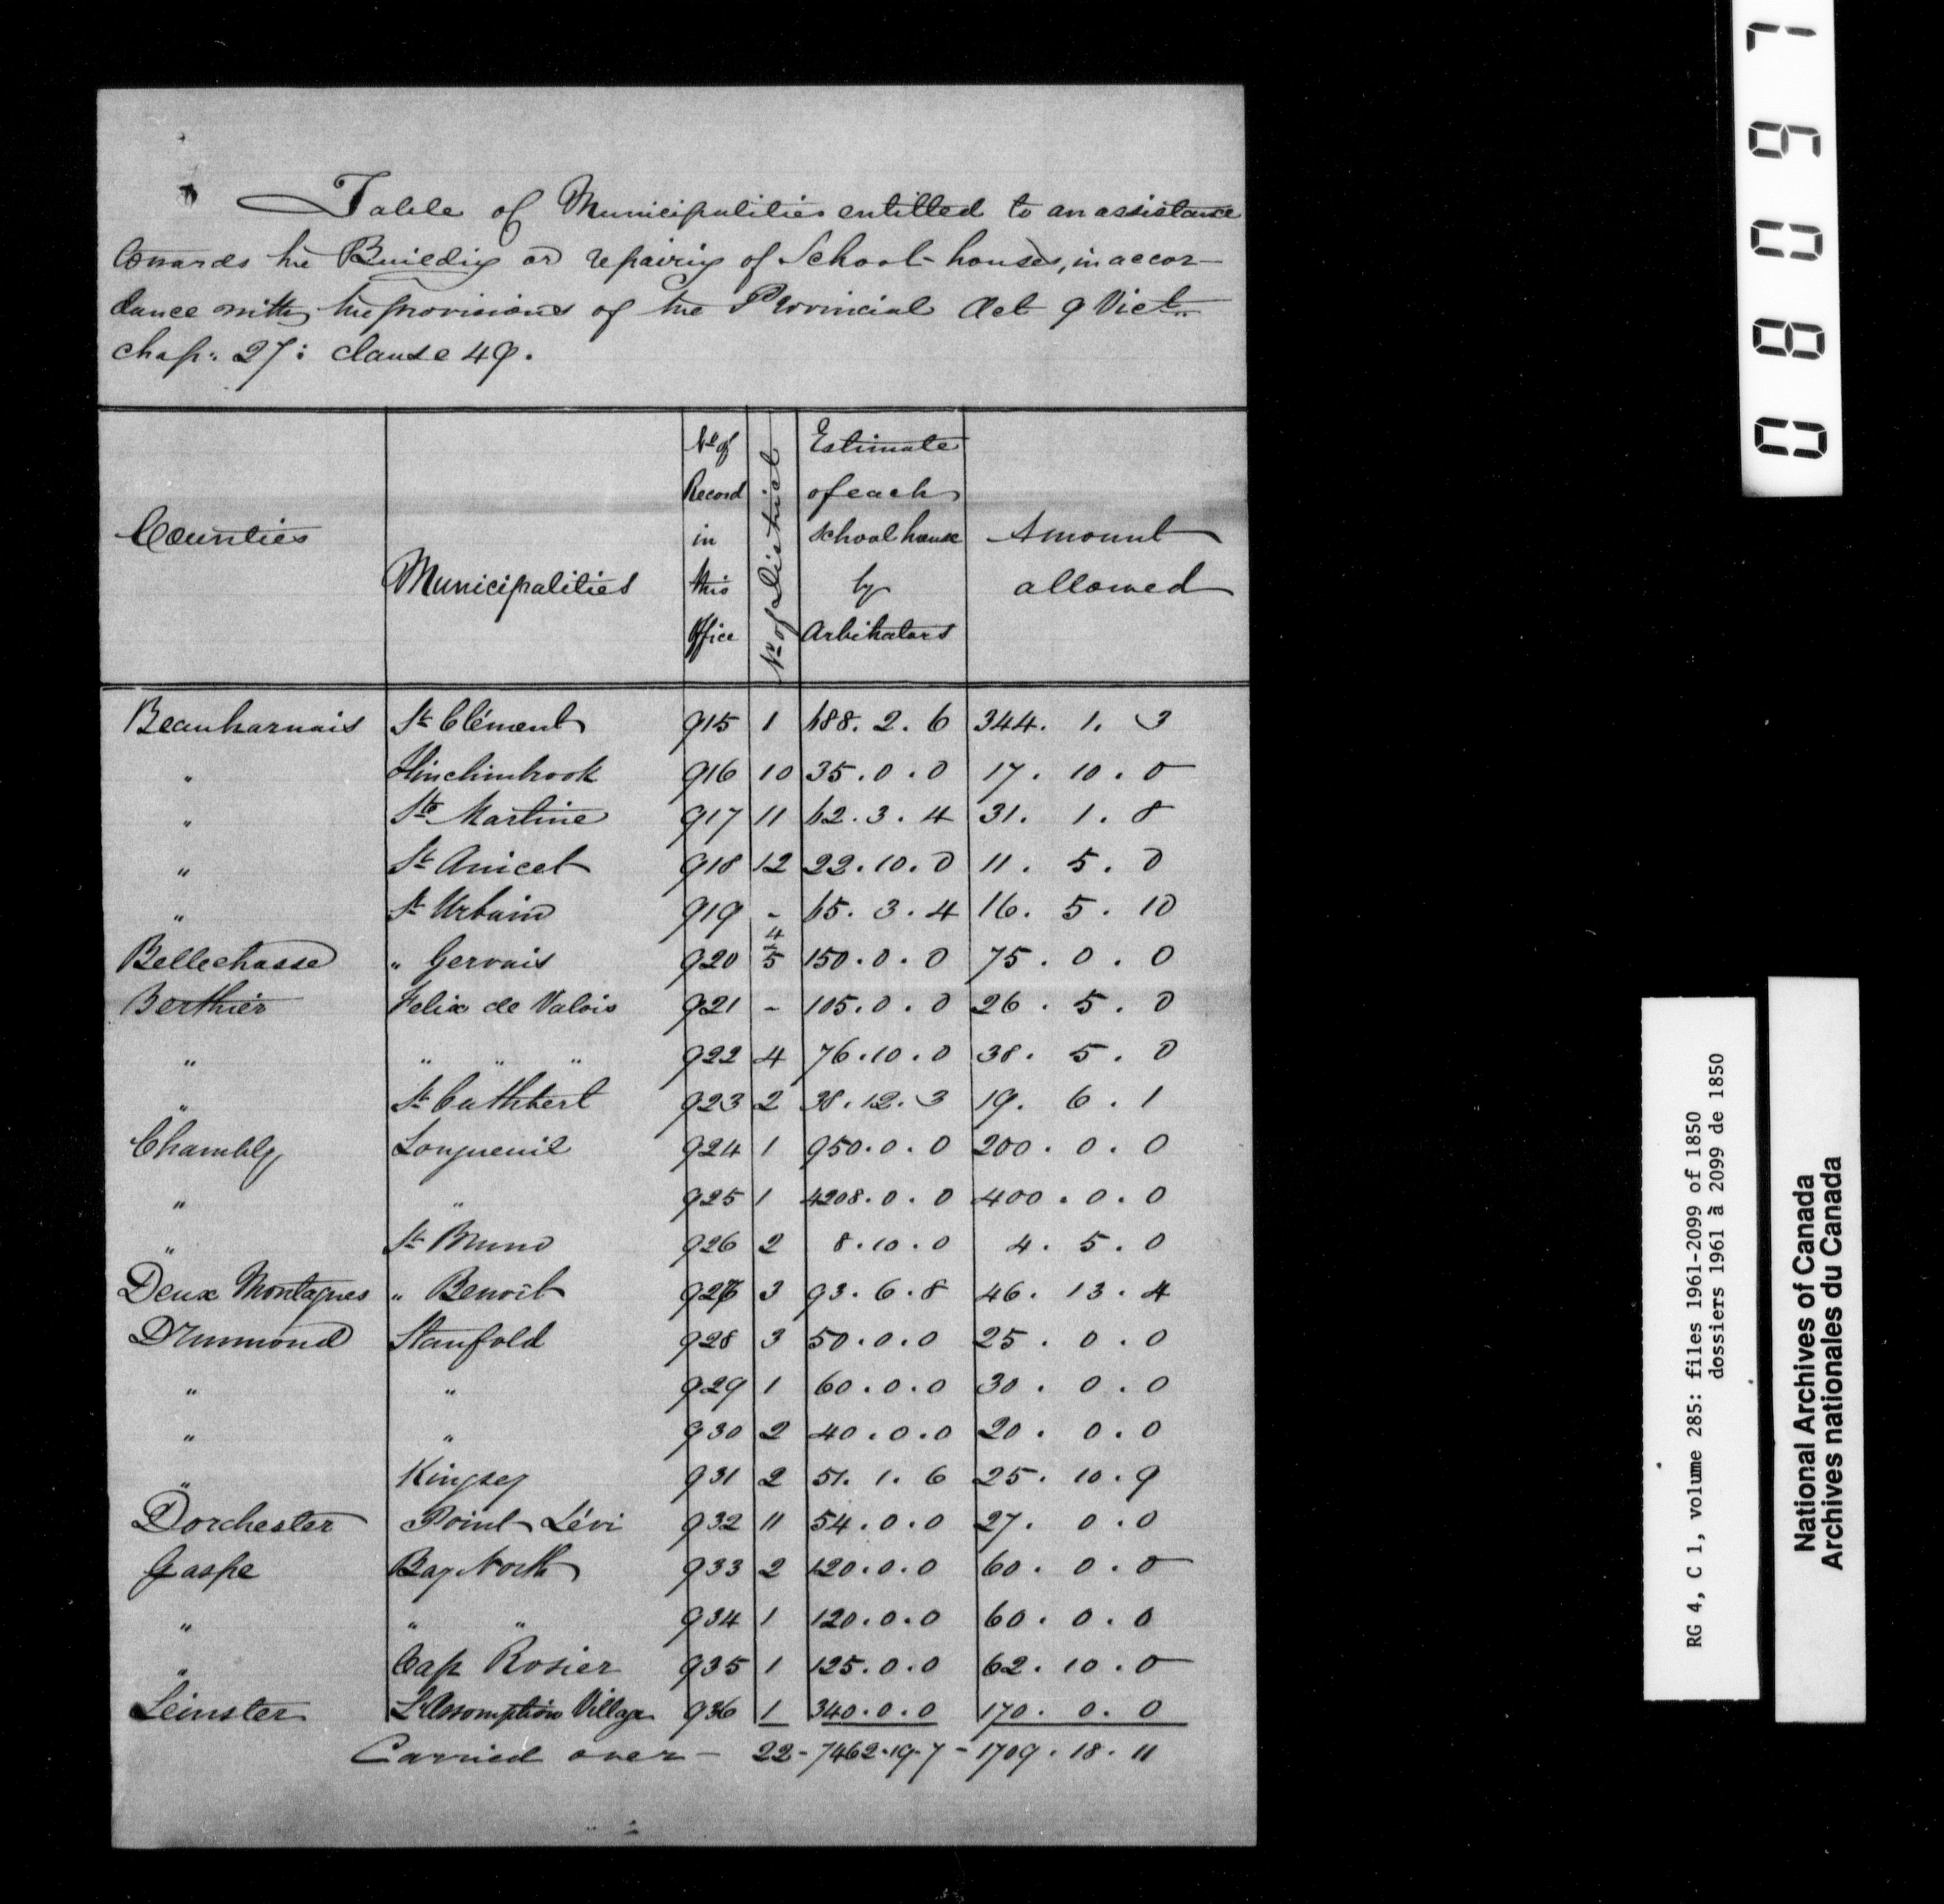 Table of Municipalities entitled to an assistance
towards the Building or repairing of School-houses, in accor-
dance with the provisions of the Provincial Act 9 Vict.
chap: 27: clause 49.
Counties Municipalities No of Record in this Office No of District Estimate of each school house by Arbitrators Amount allowed
Beauharnais St Clément 915 1 688. 2. 6 344. 1. 3
" Hinchinbrook 916 10 35. 0. 0 17. 10. 0
" Ste Martine 917 11 62. 3. 4 31. 1. 8
" St Anicet 918 12 22. 10. 0 11. 5. 0
" St Urbain 919 - 65. 3. 4 16. 5. 10
Bellechasse " Gervais 920 4/5 150. 0. 0 75. 0. 0
Berthier Felix de Valois 921 - 105. 0. 0 26. 5. 0
" " " " 922 4 76. 10. 0 38. 5. 0
" St Cuthbert 923 2 38. 12. 3 19. 6. 1
Chambly Longueuil 924 1 950. 0. 0 200. 0. 0
" " 925 1 4208. 0. 0 400. 0. 0
" St Bruno 926 2 8. 10. 0 4. 5. 0
Deux Montagnes " Benoit 927 3 93. 6. 8 46. 13. 4
Drummond Stanfold 928 3 50. 0. 0 25. 0. 0
" " 929 1 60. 0. 0 30. 0. 0
" " 930 2 40. 0. 0 20. 0. 0
" Kingsey 931 2 51. 1. 6 25. 10. 9
Dorchester Point Lévi 932 11 54. 0. 0 27. 0. 0
Gaspe Bay North 933 2 120. 0. 0 60. 0. 0
" " " 934 1 120. 0. 0 60. 0. 0
" Cap Rosier 935 1 125. 0. 0 62. 10. 0
Leinster L'Assomption Village 936 1 340. 0. 0 170. 0. 0
Carried over - 22 - 7462. 19. 7 - 1709. 18. 11
08097
RG 4, C 1, volume 285: files 1961-2099 of 1850
dossiers 1961 à 2099 de 1850
National Archives of Canada
Archives nationales du Canada